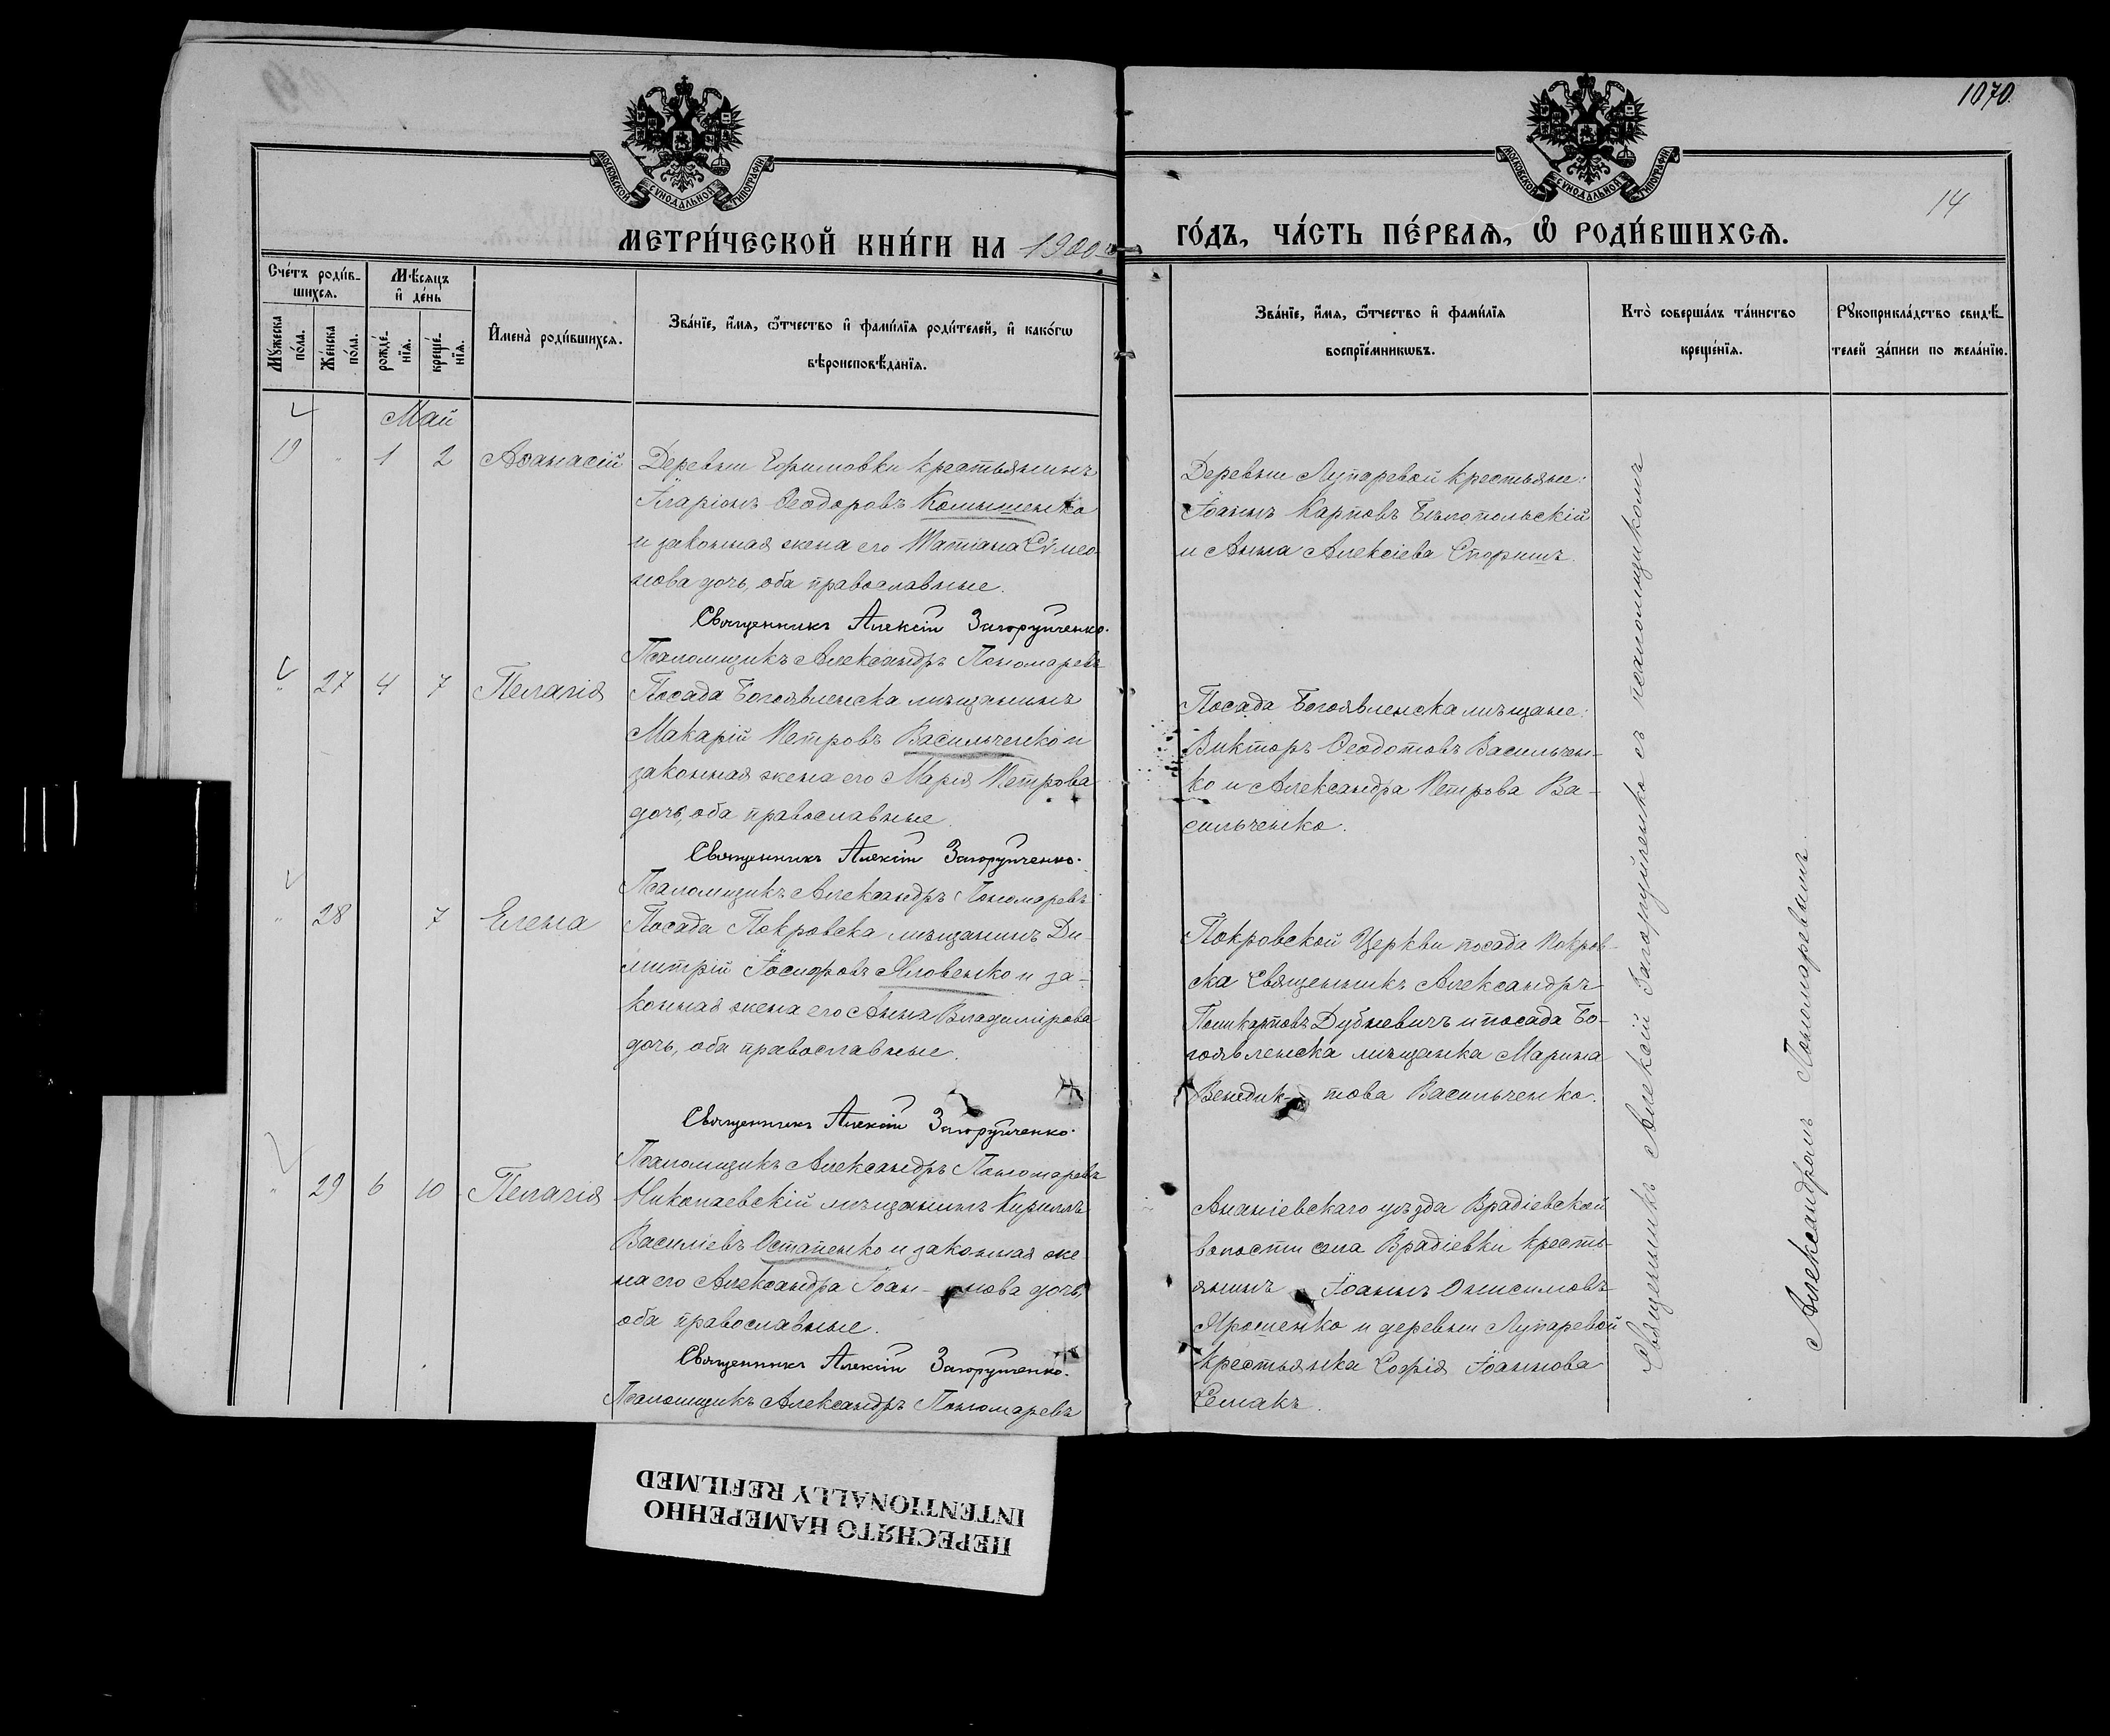 1070.
14
МОСКОВСКОЙ СѴНОДАЛЬНОЙ ТИПОГРАФІИ
МОСКОВСКОЙ СѴНОДАЛЬНОЙ ТИПОГРАФІИ
МЕТРИ́ЧЕСКОЙ КНИ́ГИ НА 1900
ГО́ДЪ, ЧА́СТЬ ПЕ́РВАѦ, Ѡ҆ РОДИ́ВШИХСѦ.
Сче́тъ роди́в-
шихсѧ.
Мꙋ́жеска
по́ла.
Же́нска
по́ла.
Мѣ́сѧцъ
и҆ де́нь
рожде́-
нїѧ.
креще́-
нїѧ.
И҆мена̀ роди́вшихсѧ.
Зва́нїе, и҆́мѧ, ѻ҆́тчество и҆ фамѵ́лїѧ роди́телей, и҆ како́гѡ
вѣроисповѣ́данїѧ.
Зва́нїе, и҆́мѧ, ѻ҆́тчество и҆ фамѵ́лїѧ
воспрїе́мникѡвъ.
Кто̀ соверша́лъ та́инство
креще́нїѧ.
Рꙋкоприкла́дство свидѣ́-
телей за́писи по жела́нїю.
Май
19 " 1 2 Аѳанасій
Деревни Ефимовки крестьянинъ
Иларіонъ Ѳеодоровъ Комышенко
и законная жена его Татіана Сѵмео-
нова дочь, оба православные.
Священникъ Алексій Загоруйченко.
Псаломщикъ Александръ Пономаревъ
Деревни Лупаревой крестьяне:
Іоаннъ Карповъ Бѣлопольскій
и Анна Алексіева Спориш.
" 27 4 7 Пелагія
Посада Богоявленска мѣщанинъ
Макарій Петровъ Васильченко и
законная жена его Марія Петрова
дочь, оба православные.
Священникъ Алексій Загоруйченко.
Псаломщикъ Александръ Пономаревъ
Посада Богоявленска мѣщане:
Викторъ Ѳеодотовъ Васильчен-
ко и Александра Петрова Ва-
сильченко.
" 28 7 Елена
Посада Покровска мѣщанинъ Ди-
митрій Іосифовъ Яловенко и за-
конная жена его Анна Владимірова
дочь, оба православные.
Священникъ Алексій Загоруйченко.
Псаломщикъ Александръ Пономаревъ
Покровской Церкви посада Покров-
ска Священникъ Александръ
Поликарповъ Дубневичъ и посада Бо-
гоявленска мѣщанка Марина
Венедик- това Васильченко.
" 29 6 10 Пелагія
Николаевскій мѣщанинъ Кириллъ
Василіевъ Остапенко и законная же-
на его Александра Іоан- нова дочь,
оба православные.
Священникъ Алексій Загоруйченко.
Псаломщикъ Александръ Пономаревъ
Ананіевскаго уѣзда Врадіевской
волости села Врадіевки кресть-
янинъ Іоаннъ Онисимовъ
Ярошенко и деревни Лупаревой
крестьянка Софія Іоаннова
Семакъ.
Священникъ Алексій Загоруйченко съ псаломщикомъ
Александромъ Пономаревымъ.
ПЕРЕСНЯТО НАМЕРЕННО
INTENTIONALLY REFILMED